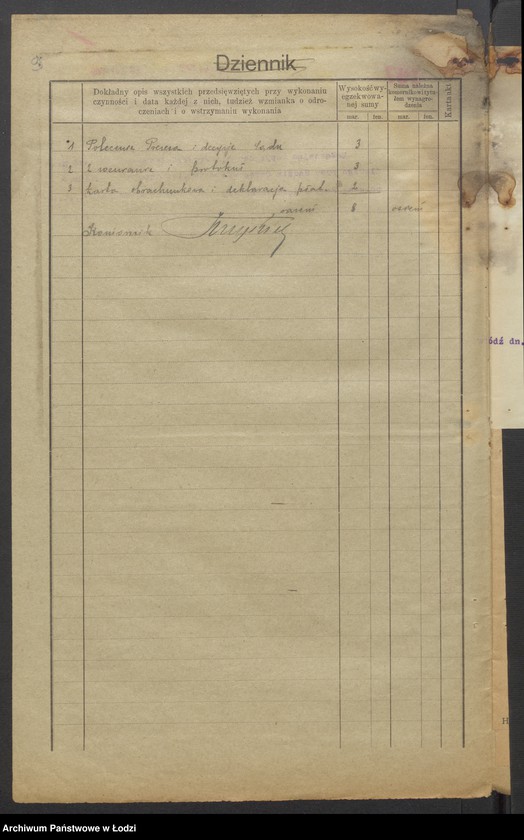 Dziennik
Dokładny opis wszystkich przedsięwziętych przy wykonaniu
czynności i data każdej z nich, tudzież wzmianka o odro-
czeniach i o wstrzymaniu wykonania
Wysokość wy-
egzekwowa-
nej sumy
Suma należna
komornikowi tytu-
łem wynagro-
dzenia
Kwitanki
mar. fen. mar. fen.
1 Polecenie Prezesa i decyzja Sądu 3
2 2 wezwania i protokuł 3
3 karta obrachunkowa i deklaracja 2
8
Komornik
ódź dn.
H
Archiwum Państwowe w Łodzi